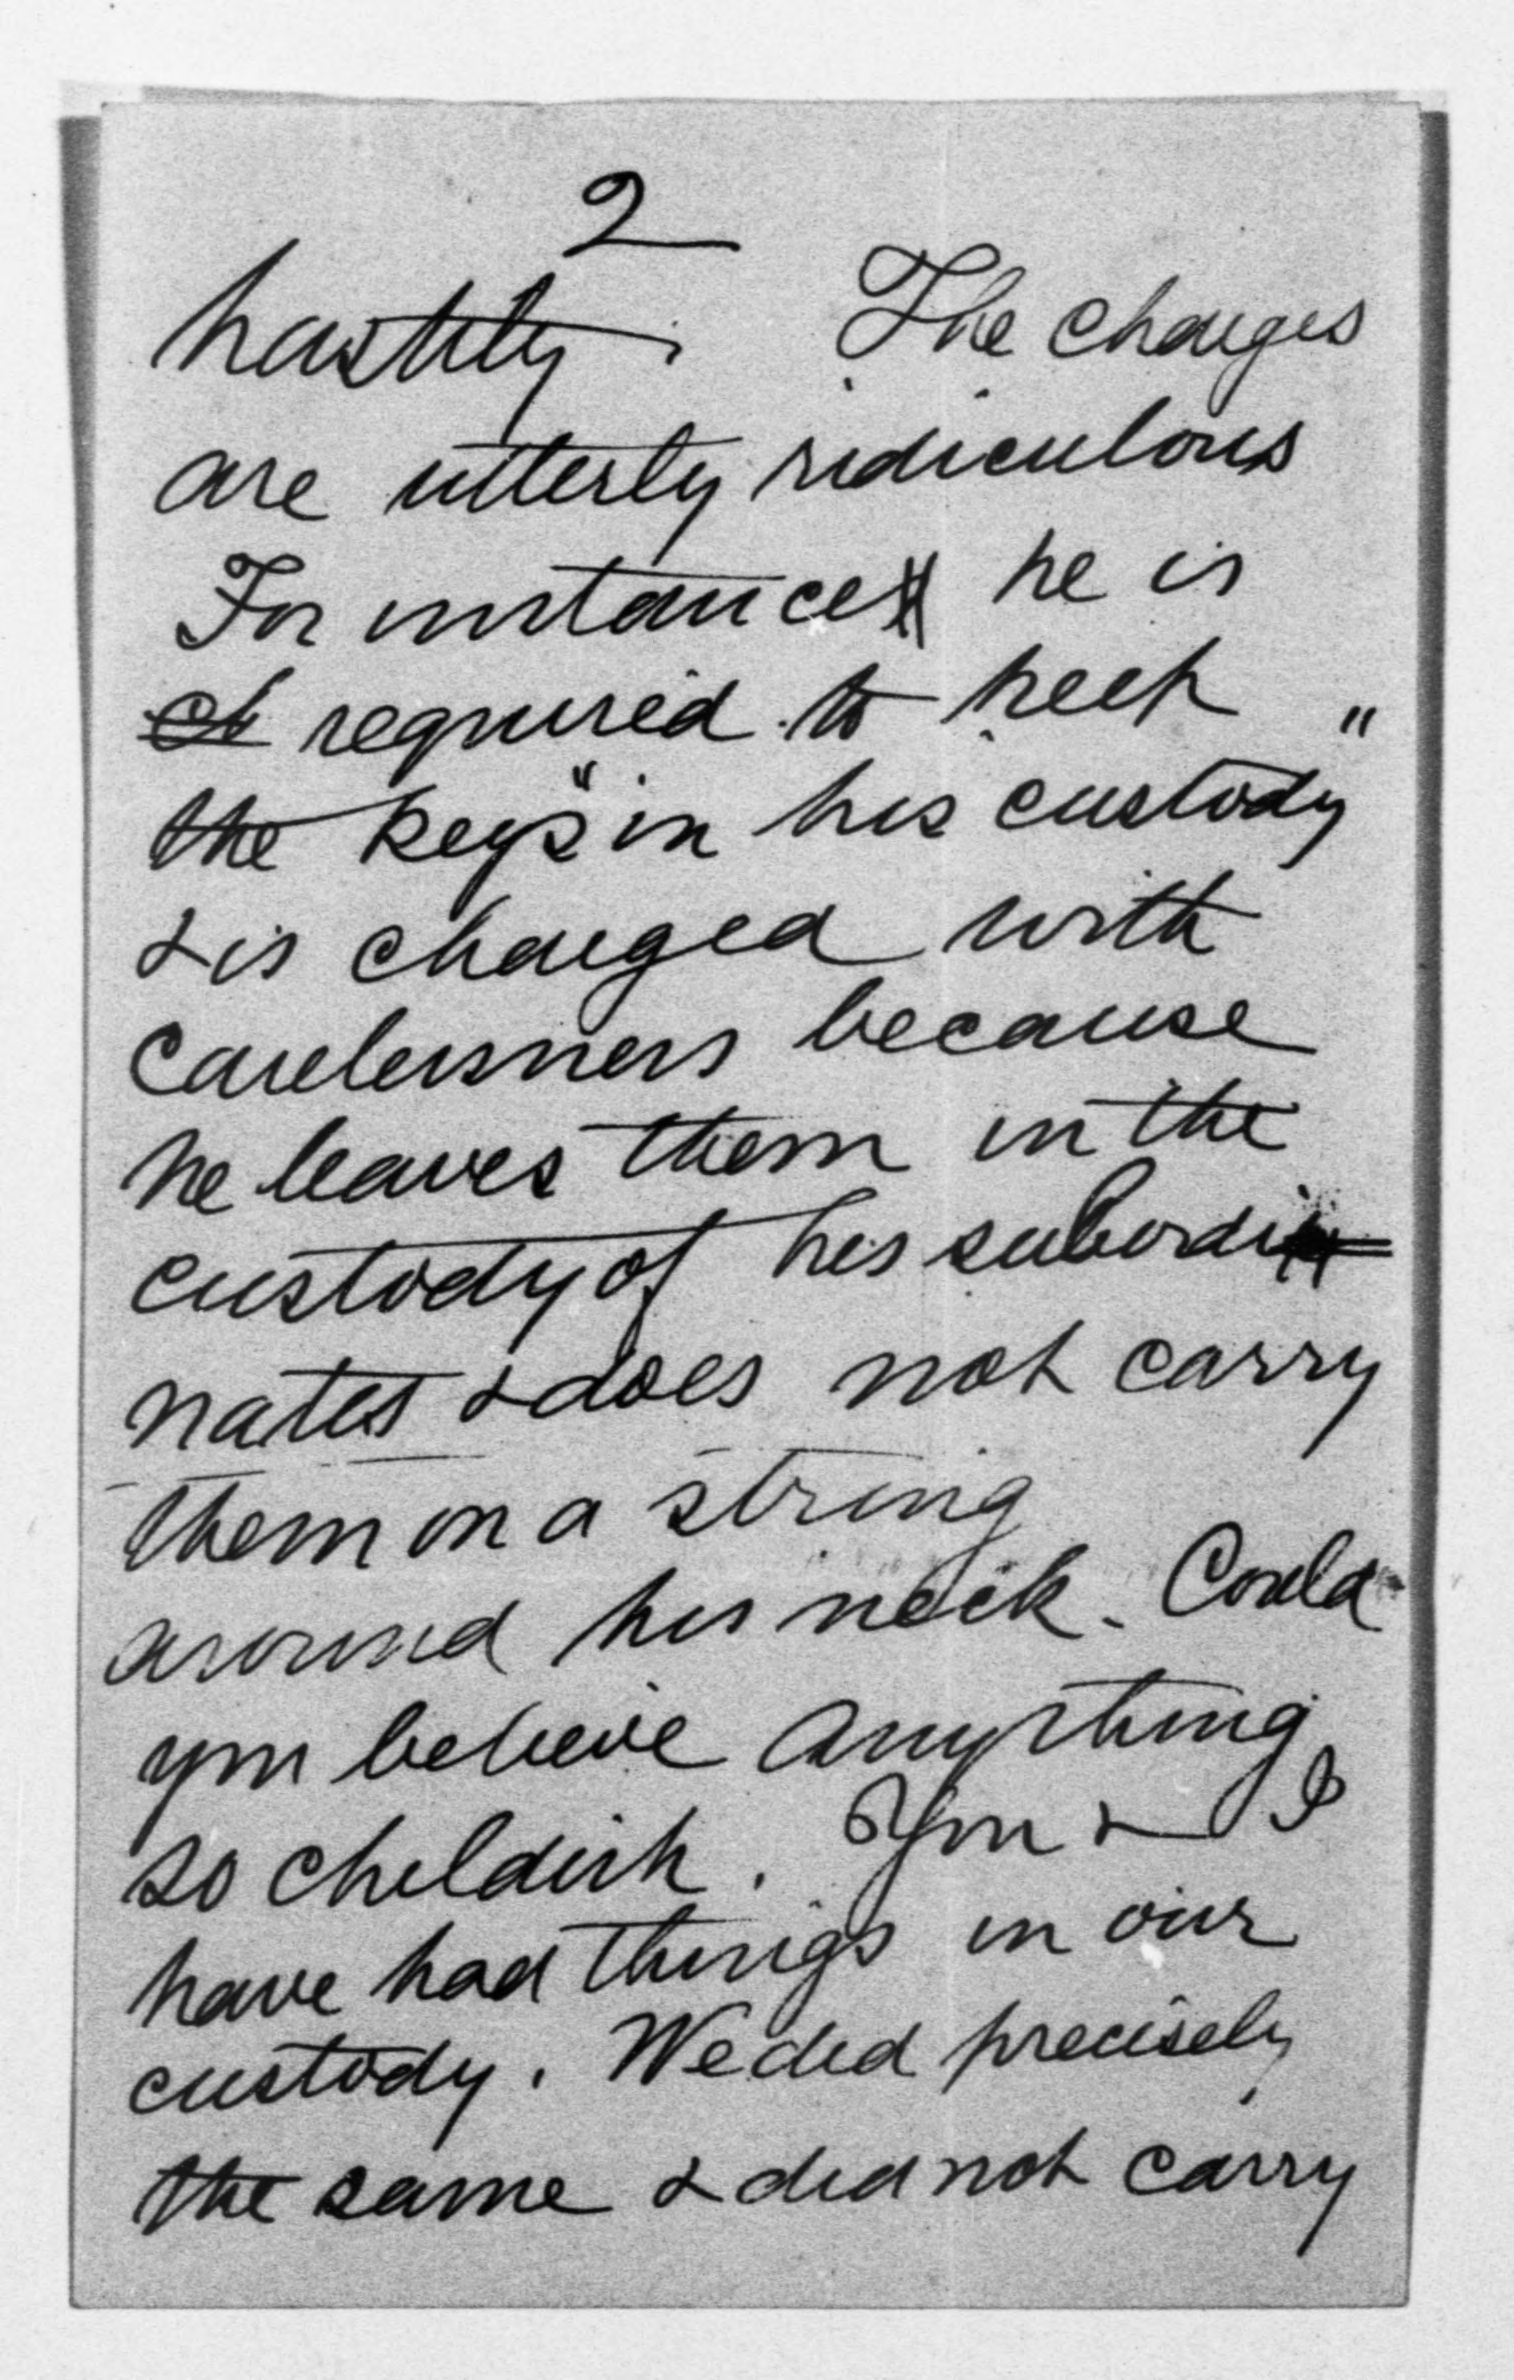 2
hastily. The charges
are utterly ridiculous
For instance he is
required to keep
the keys "in his custody"
& is charged with
carelessness because
he leaves them in the
custody of his subordi
nates & does not carry
them on a string
around his neck. Could
you believe anything
so childish. You & I
have had things in our
custody. We did precisely
the same & did not carry